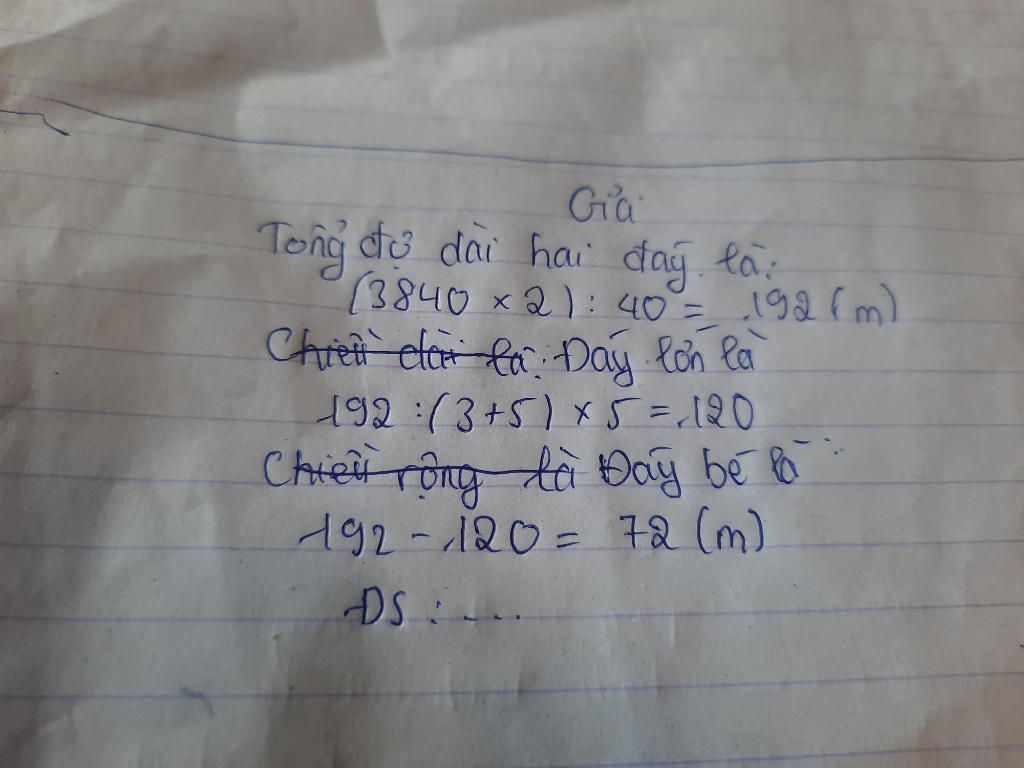 Giải
Tổng độ dài hai đáy là:
(3840 x 2) : 40 = 192 (m)
Chiều dài là: Đáy lớn là
192 : (3+5) x 5 = 120
Chiều rộng là Đáy bé là :
192 - 120 = 72 (m)
ĐS : ....